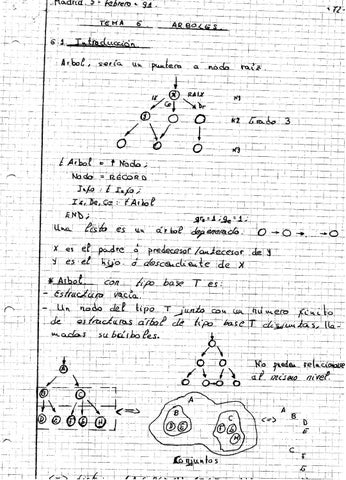 Madrid 5 - Febrero - 91.
TEMA 6 ARBOLES
6.1 Introducción
Arbol, sería un puntero a nodo raíz
X RAIX N1
Iz Ce De
Y N2 Grado 3
N3
t Arbol = ↑ Nodo;
Nodo = RECORD
Info : t Info;
Iz, De, Ce : t Arbol
END;
Una lista es un árbol degenerado.
X es el padre ó predecesor/antecesor de Y
Y es el hijo ó descendiente de X
* Arbol con tipo base T es:
- Estructura vacía.
- Un nodo del tipo T junto con un número finito
de estructuras árbol de tipo base T disjuntas, lla-
madas subárboles.
No pueden relacionarse
al mismo nivel.
A
B C
D E F G H
<=>
A
B C
D E F G H
<=>
A
B
D
E
C
F
G
Conjuntos